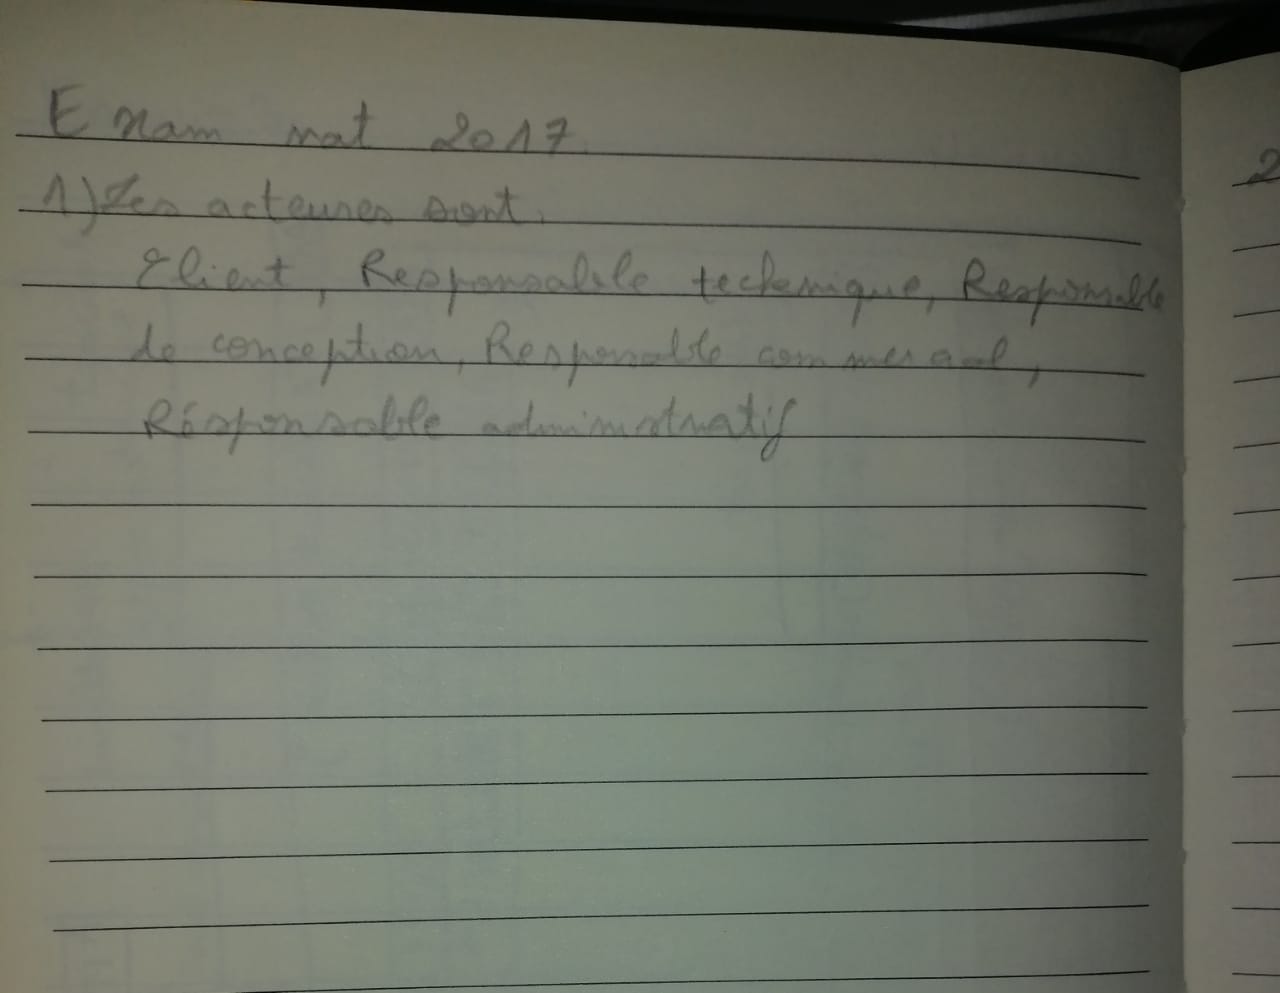 Exam nat 2017
1) Les acteures sont.
Client, Responsable technique, Responsable
de conception, Responsable commercial,
Résponsable administratif
2